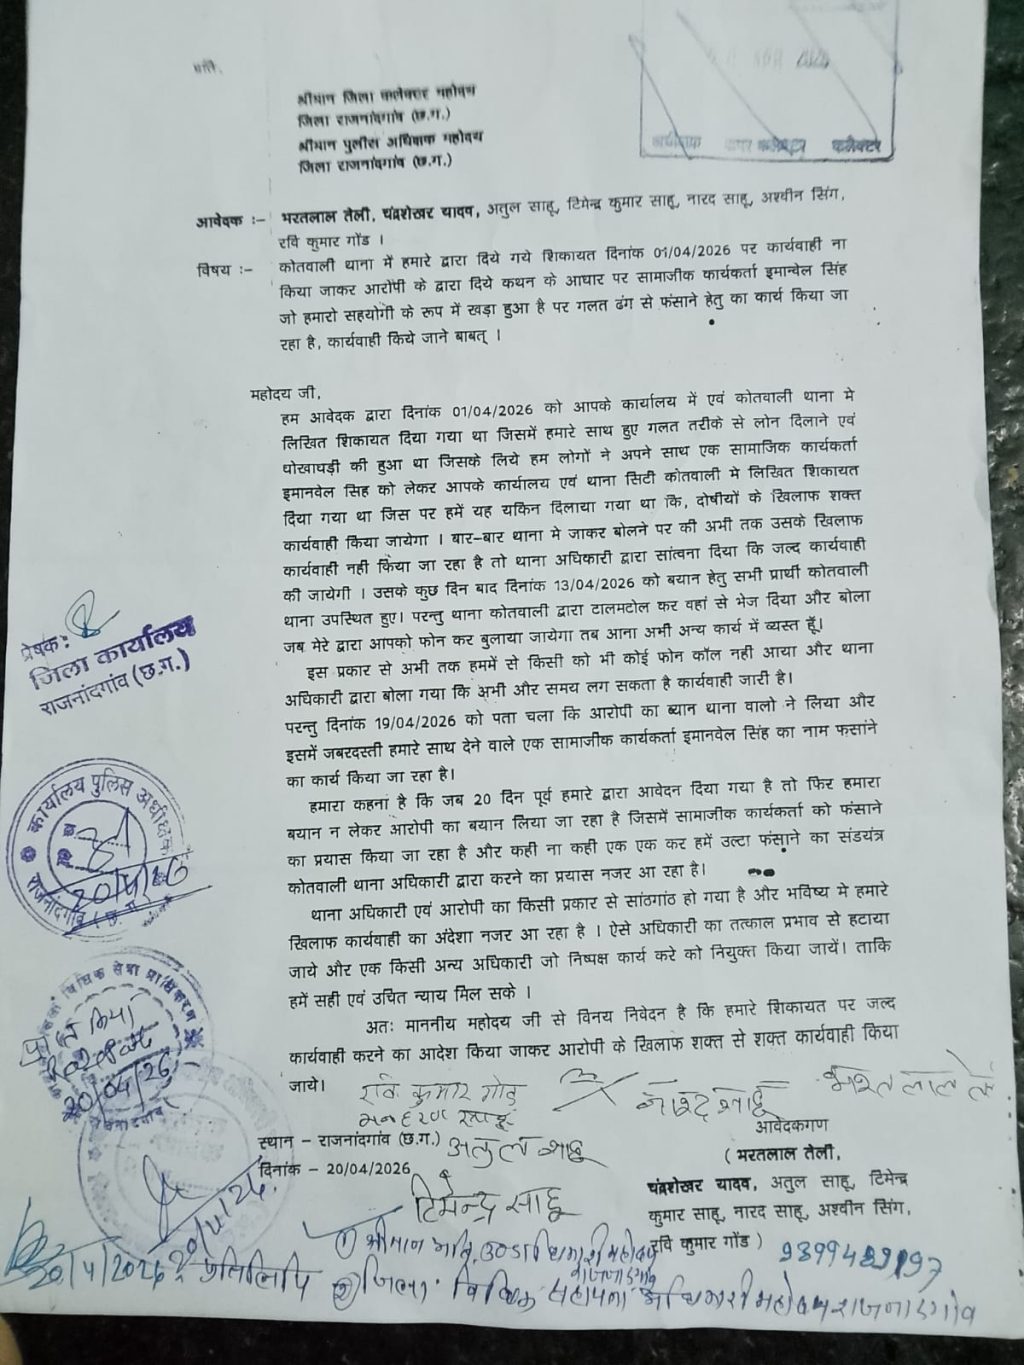 प्रति,
श्रीमान जिला कलेक्टर महोदय
जिला राजनांदगांव (छ.ग.)
श्रीमान पुलीस अधिक्षक महोदय
जिला राजनांदगांव (छ.ग.)
कलेक्टर
आवेदक :– भरतलाल तेली, चंद्रशेखर यादव, अतुल साहू, टिमेन्द्र कुमार साहू, नारद साहू, अश्वीन सिंग,
रवि कुमार गोंड ।
विषय :– कोतवाली थाना में हमारे द्वारा दिये गये शिकायत दिनांक 01/04/2026 पर कार्यवाही ना
किया जाकर आरोपी के द्वारा दिये कथन के आधार पर सामाजीक कार्यकर्ता इमान्वेल सिंह
जो हमारो सहयोगी के रूप में खड़ा हुआ है पर गलत ढंग से फंसाने हेतु का कार्य किया जा
रहा है, कार्यवाही किये जाने बाबत् ।
महोदय जी,
हम आवेदक द्वारा दिनांक 01/04/2026 को आपके कार्यालय में एवं कोतवाली थाना मे
लिखित शिकायत दिया गया था जिसमें हमारे साथ हुए गलत तरीके से लोन दिलाने एवं
धोखाधड़ी की हुआ था जिसके लिये हम लोगों ने अपने साथ एक सामाजिक कार्यकर्ता
इमानवेल सिह को लेकर आपके कार्यालय एवं थाना सिटी कोतवाली मे लिखित शिकायत
दिया गया था जिस पर हमें यह यकिन दिलाया गया था कि, दोषीयों के खिलाफ शक्त
कार्यवाही किया जायेगा । बार-बार थाना मे जाकर बोलने पर की अभी तक उसके खिलाफ
कार्यवाही नही किया जा रहा है तो थाना अधिकारी द्वारा सांत्वना दिया कि जल्द कार्यवाही
की जायेगी । उसके कुछ दिन बाद दिनांक 13/04/2026 को बयान हेतु सभी प्रार्थी कोतवाली
थाना उपस्थित हुए। परन्तु थाना कोतवाली द्वारा टालमटोल कर वहां से भेज दिया और बोला
जब मेरे द्वारा आपको फोन कर बुलाया जायेगा तब आना अभी अन्य कार्य में व्यस्त हूँ।
इस प्रकार से अभी तक हममें से किसी को भी कोई फोन कॉल नही आया और थाना
अधिकारी द्वारा बोला गया कि अभी और समय लग सकता है कार्यवाही जारी है।
परन्तु दिनांक 19/04/2026 को पता चला कि आरोपी का ब्यान थाना वालो ने लिया और
इसमें जबरदस्ती हमारे साथ देने वाले एक सामाजीक कार्यकर्ता इमानवेल सिंह का नाम फसांने
का कार्य किया जा रहा है।
हमारा कहना है कि जब 20 दिन पूर्व हमारे द्वारा आवेदन दिया गया है तो फिर हमारा
बयान न लेकर आरोपी का बयान लिया जा रहा है जिसमें सामाजीक कार्यकर्ता को फंसाने
का प्रयास किया जा रहा है और कही ना कही एक एक कर हमें उल्टा फंसाने का संडयंत्र
कोतवाली थाना अधिकारी द्वारा करने का प्रयास नजर आ रहा है।
थाना अधिकारी एवं आरोपी का किसी प्रकार से सांठगांठ हो गया है और भविष्य मे हमारे
खिलाफ कार्यवाही का अंदेशा नजर आ रहा है । ऐसे अधिकारी का तत्काल प्रभाव से हटाया
जाये और एक किसी अन्य अधिकारी जो निष्पक्ष कार्य करे को नियुक्त किया जायें। ताकि
हमें सही एवं उचित न्याय मिल सके ।
अतः माननीय महोदय जी से विनय निवेदन है कि हमारे शिकायत पर जल्द
कार्यवाही करने का आदेश किया जाकर आरोपी के खिलाफ शक्त से शक्त कार्यवाही किया
जाये।
रवि कुमार गोंड
नारद साहू
भरत लाल
स्थान – राजनांदगांव (छ.ग.)
अतुल साहू
दिनांक – 20/04/2026
टिमेन्द्र साहू
आवेदकगण
( भरतलाल तेली,
चंद्रशेखर यादव, अतुल साहू, टिमेन्द्र
कुमार साहू, नारद साहू, अश्वीन सिंग,
रवि कुमार गोंड )
प्रेषक:
जिला कार्यालय
राजनांदगांव (छ.ग.)
कार्यालय पुलिस अधीक्षक
राजनांदगांव (छ.ग.)
20/4/26
विधिक सेवा प्राधिकरण
प्राप्त किया
20/04/26
20/4/26
20/4/2026
प्रतिलिपि
② जिला विधिक सहायता अधिकारी महोदय राजनांदगांव